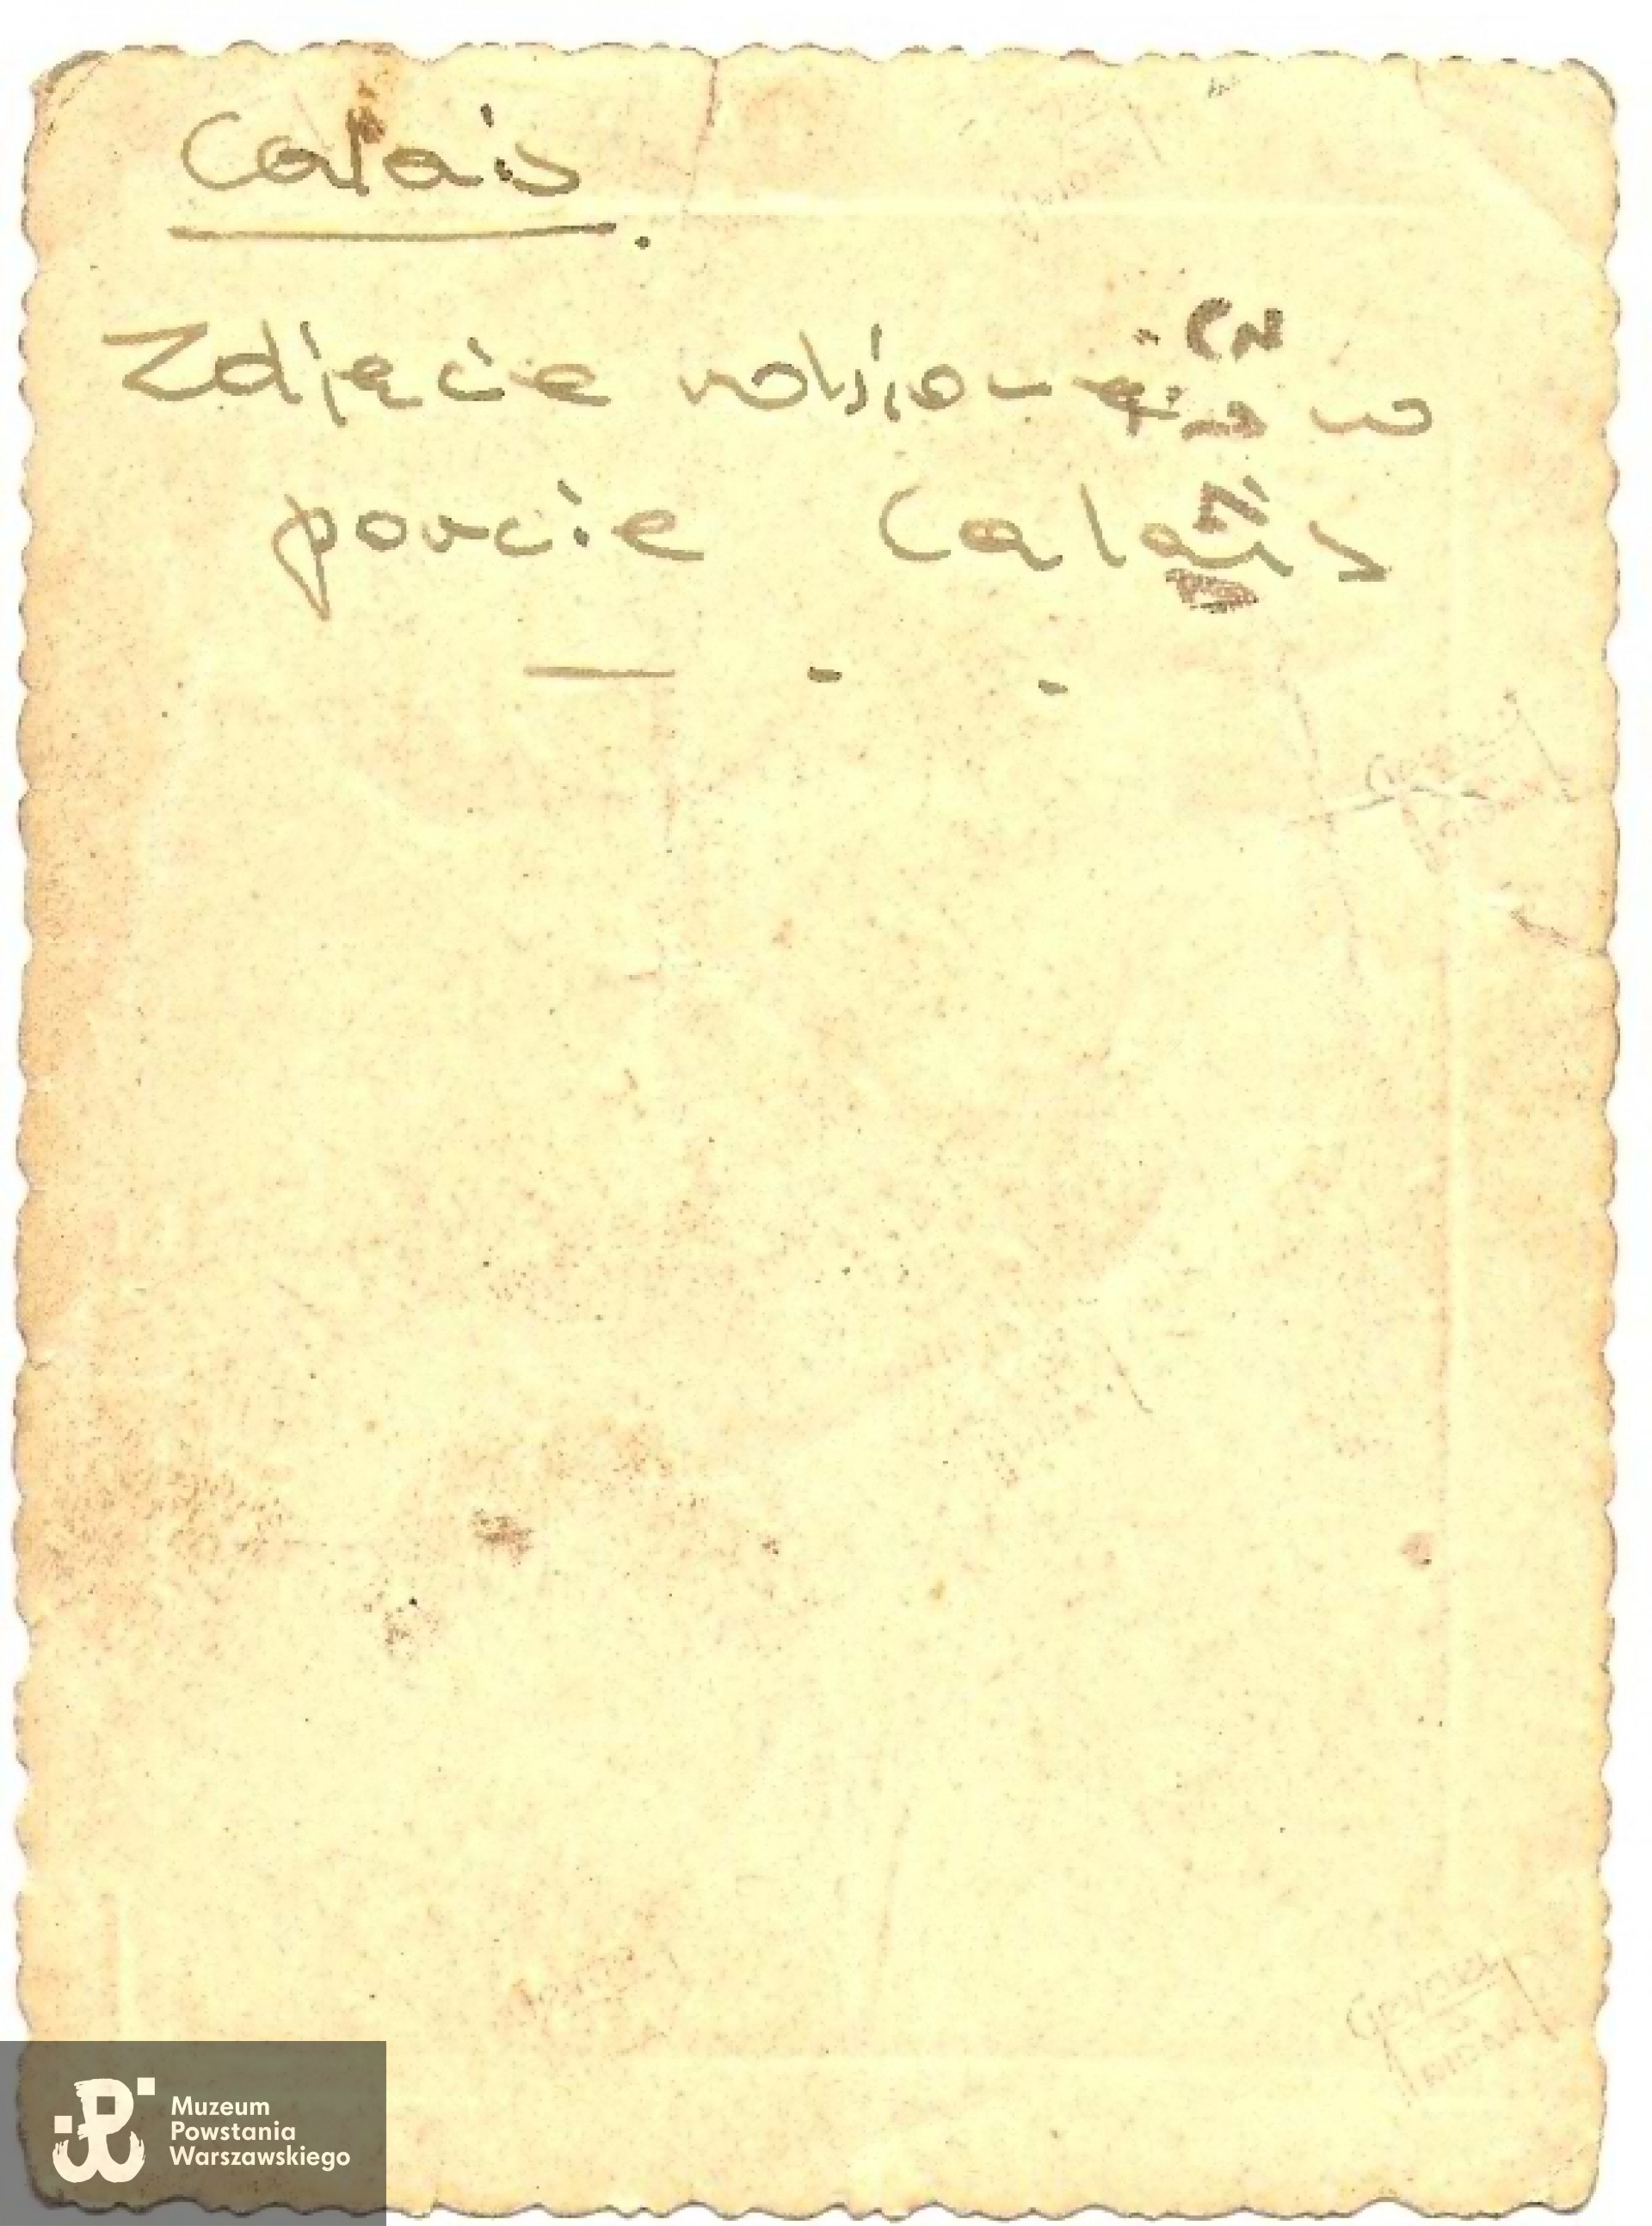 Calais.
Zdjęcie robione w
porcie Calais
Gevaert
RIDAX
Muzeum
Powstania
Warszawskiego